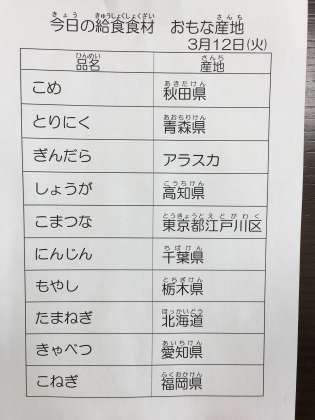 今日の給食食材　おもな産地
3月12日(火)
品名　産地
こめ　秋田県
とりにく　青森県
ぎんだら　アラスカ
しょうが　高知県
こまつな　東京都江戸川区
にんじん　千葉県
もやし　栃木県
たまねぎ　北海道
きゃべつ　愛知県
こねぎ　福岡県